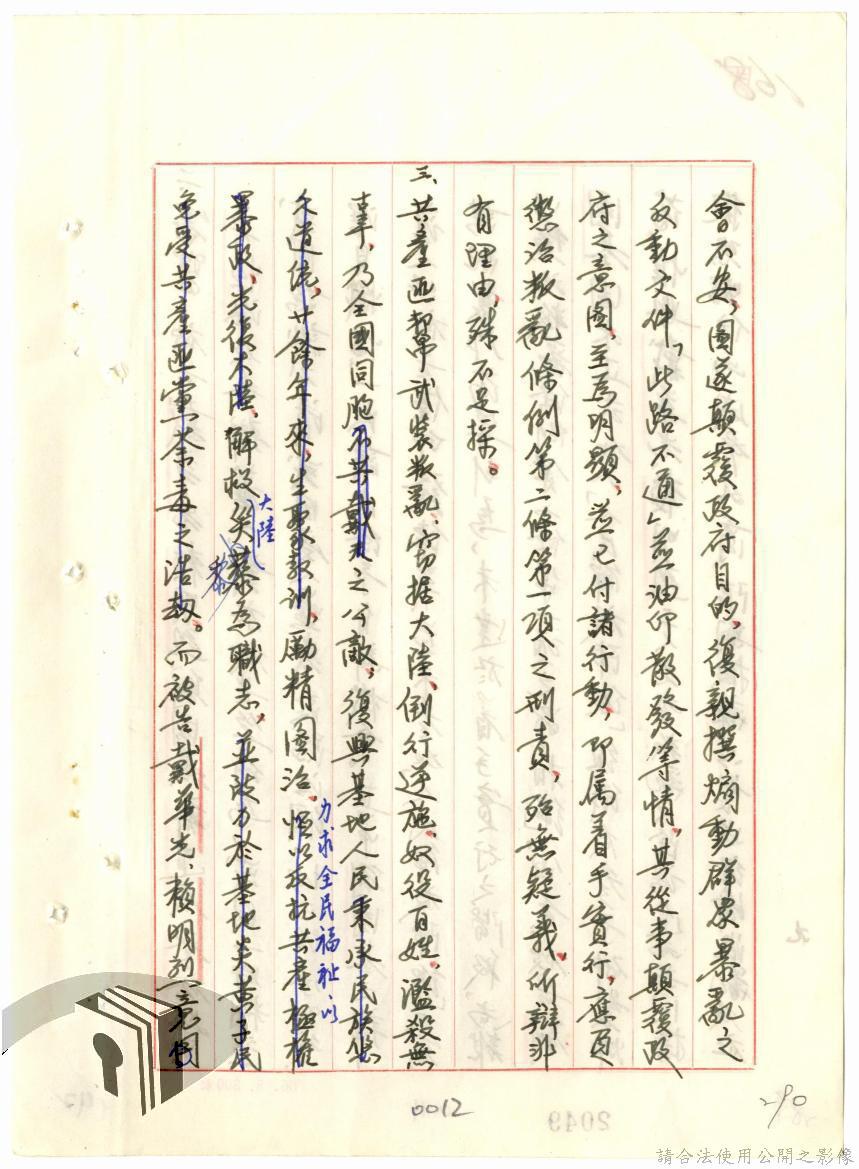 會不安，圖遂顛覆政府目的，復親撰煽動群眾暴亂之
反動文件「此路不通」並油印散發等情，其從事顛覆政
府之意圖，至為明顯，並已付諸行動，即屬着手實行，應負
懲治叛亂條例第二條第一項之刑責，殆無疑義，所辯非
有理由，殊不足採。
三、共產匪幫武裝叛亂，窃据大陸，倒行逆施，奴役百姓，濫殺無
辜，乃全國同胞不共戴天之公敵，復興基地人民秉承民族悠
久道統，廿餘年來，生聚教訓，勵精圖治，恒以反抗共產極權
力求全民福祉，以
暴政，光復大陸，解救
大陸
黎
為職志，並致力於基地炎黃子民
免受共產匪黨荼毒之浩劫。而被告戴華光、賴明烈意圖
0012
290
168
2049
請合法使用公開之影像